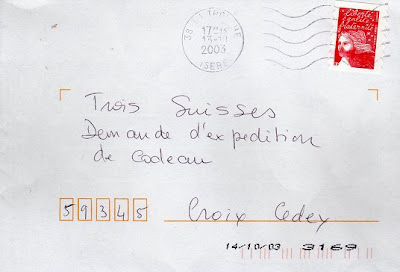 38 LA TRONCHE
17H15
13-10
2003
ISERE
Liberté
égalité
fraternité
Trois Suisses
Demande d'expedition
de cadeau
59345 Croix Cedex
14/10/03 3169